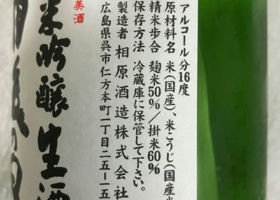 アルコール分16度
原材料名 米(国産)、米こうじ(国産米
精米歩合 麹米50%/掛米60%
保存方法 冷蔵庫に保管して下さい。
製造者 相原酒造株式会社
広島県呉市仁方本町一丁目二五-一五
美酒
米吟醸生酒